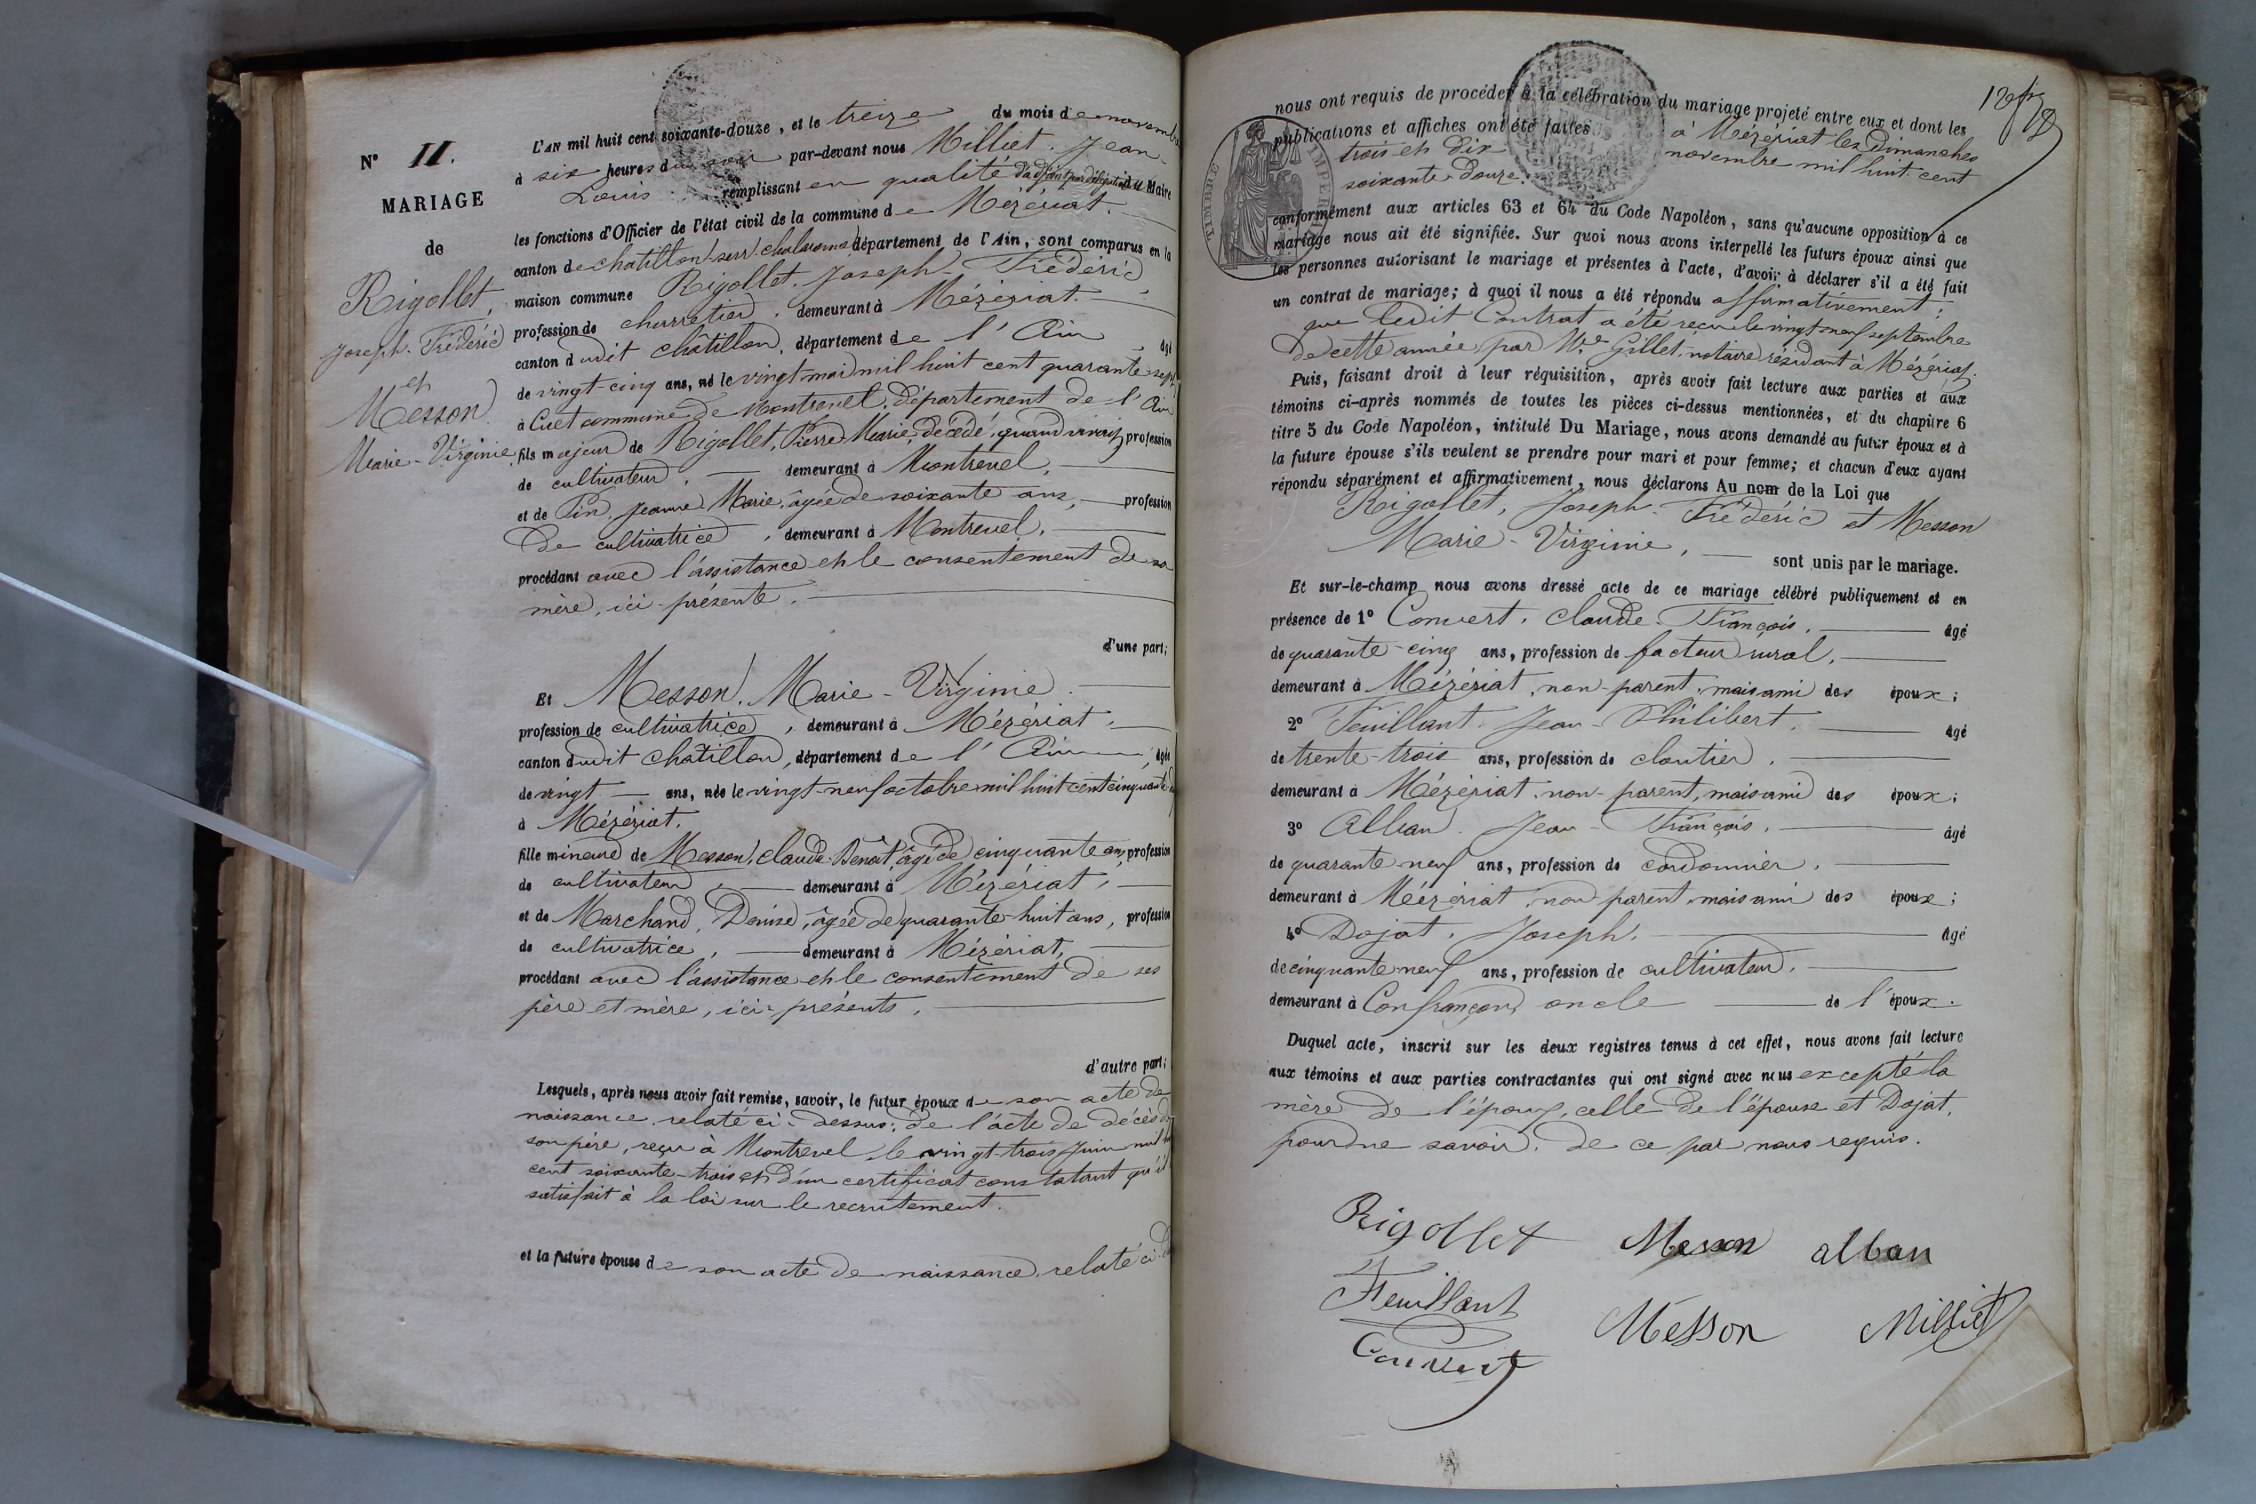 N° 11.
MARIAGE
de
Rigollet,
Joseph-Frédéric
et
Messon
Marie-Virginie
L'AN mil huit cent soixante-douze, et le treize du mois de novembre
à six heures du soir par-devant nous Milliet, Jean-
Louis remplissant en qualité d'adjoint par délégation du Maire
les fonctions d'Officier de l'état civil de la commune de Mézériat.
canton de chatillon sur chalaronne département de l'Ain, sont comparus en la
maison commune Rigollet, Joseph-Frédéric,
profession de charretier, demeurant à Mézériat.
canton dudit châtillon, département de l'Ain, âgé
de vingt-cinq ans, né le vingt mai mil huit cent quarante sept
à Cuet commune de Montrevel, département de l'Ain
fils majeur de Rigollet, Pierre Marie, décédé, quand vivait, profession
de cultivateur, demeurant à Montrevel,
et de Pin, Jeanne Marie, âgée de soixante ans, profession
de cultivatrice, demeurant à Montrevel,
procédant avec l'assistance et le consentement de sa
mère, ici-présente,
d'une part;
Et Messon, Marie-Virginie.
profession de cultivatrice, demeurant à Mézériat,
canton dudit chatillon, département de l'Ain, âgée
de vingt ans, née le vingt-neuf octobre mil huit cent cinquante
à Mézériat.
fille mineure de Messon, Claude-Benoît âgé de cinquante ans, profession
de cultivateur, demeurant à Mézériat,
et de Marchand, Denise, âgée de quarante-huit ans, profession
de cultivatrice, demeurant à Mézériat,
procédant avec l'assistance et le consentement de ses
père et mère, ici-présents,
d'autre part;
Lesquels, après nous avoir fait remise, savoir, le futur époux de son acte de
naissance relaté ci-dessus; de l'acte de décès de
son père, reçu à Montrevel le vingt-trois juin mil huit
cent soixante-trois et d'un certificat constatant qu'il
satisfait à la loi sur le recrutement.
et la future épouse de son acte de naissance, relaté ci-
TIMBRE IMPÉRIAL
nous ont requis de procéder à la célébration du mariage projeté entre eux et dont les
publications et affiches ont été faites à Mézériat les Dimanches
trois et dix novembre mil huit cent
soixante-douze.
conformément aux articles 63 et 64 du Code Napoléon, sans qu'aucune opposition à ce
mariage nous ait été signifiée. Sur quoi nous avons interpellé les futurs époux ainsi que
les personnes autorisant le mariage et présentes à l'acte, d'avoir à déclarer s'il a été fait
un contrat de mariage; à quoi il nous a été répondu affirmativement;
que ledit Contrat a été reçu le vingt-neuf septembre
de cette année, par Me Gillet, notaire résidant à Mézériat.
Puis, faisant droit à leur réquisition, après avoir fait lecture aux parties et aux
témoins ci-après nommés de toutes les pièces ci-dessus mentionnées, et du chapitre 6
titre 5 du Code Napoléon, intitulé Du Mariage, nous avons demandé au futur époux et à
la future épouse s'ils veulent se prendre pour mari et pour femme; et chacun d'eux ayant
répondu séparément et affirmativement, nous déclarons Au nom de la Loi que
Rigollet, Joseph-Frédéric et Messon
Marie-Virginie, sont unis par le mariage.
Et sur-le-champ nous avons dressé acte de ce mariage célébré publiquement et en
présence de 1° Convert, Claude-François, âgé
de quarante-cinq ans, profession de facteur rural,
demeurant à Mézériat, non-parent, mais ami des époux;
2° Feuillant, Jean-Philibert, âgé
de trente-trois ans, profession de cloutier,
demeurant à Mézériat, non-parent, mais ami des époux;
3° Alban, Jean-François, âgé
de quarante neuf ans, profession de cordonnier,
demeurant à Mézériat, non parent, mais ami des époux;
4° Dojat, Joseph, âgé
de cinquante-neuf ans, profession de cultivateur,
demeurant à Confrançon, oncle de l'époux.
Duquel acte, inscrit sur les deux registres tenus à cet effet, nous avons fait lecture
aux témoins et aux parties contractantes qui ont signé avec nous excepté la
mère de l'époux, celle de l'épouse et Dojat,
pour ne savoir, de ce par nous requis.
Rigollet Messon alban
Feuillant Messon Milliet
Convert